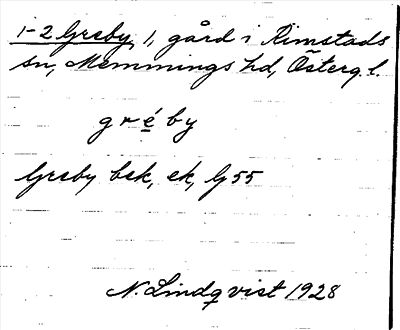 1-2 Greby, 1, gård i Rimstads
sn, Memmings hd, Österg. l.
gréby
Greby bsk, ek, G 55
N. Lindqvist 1928